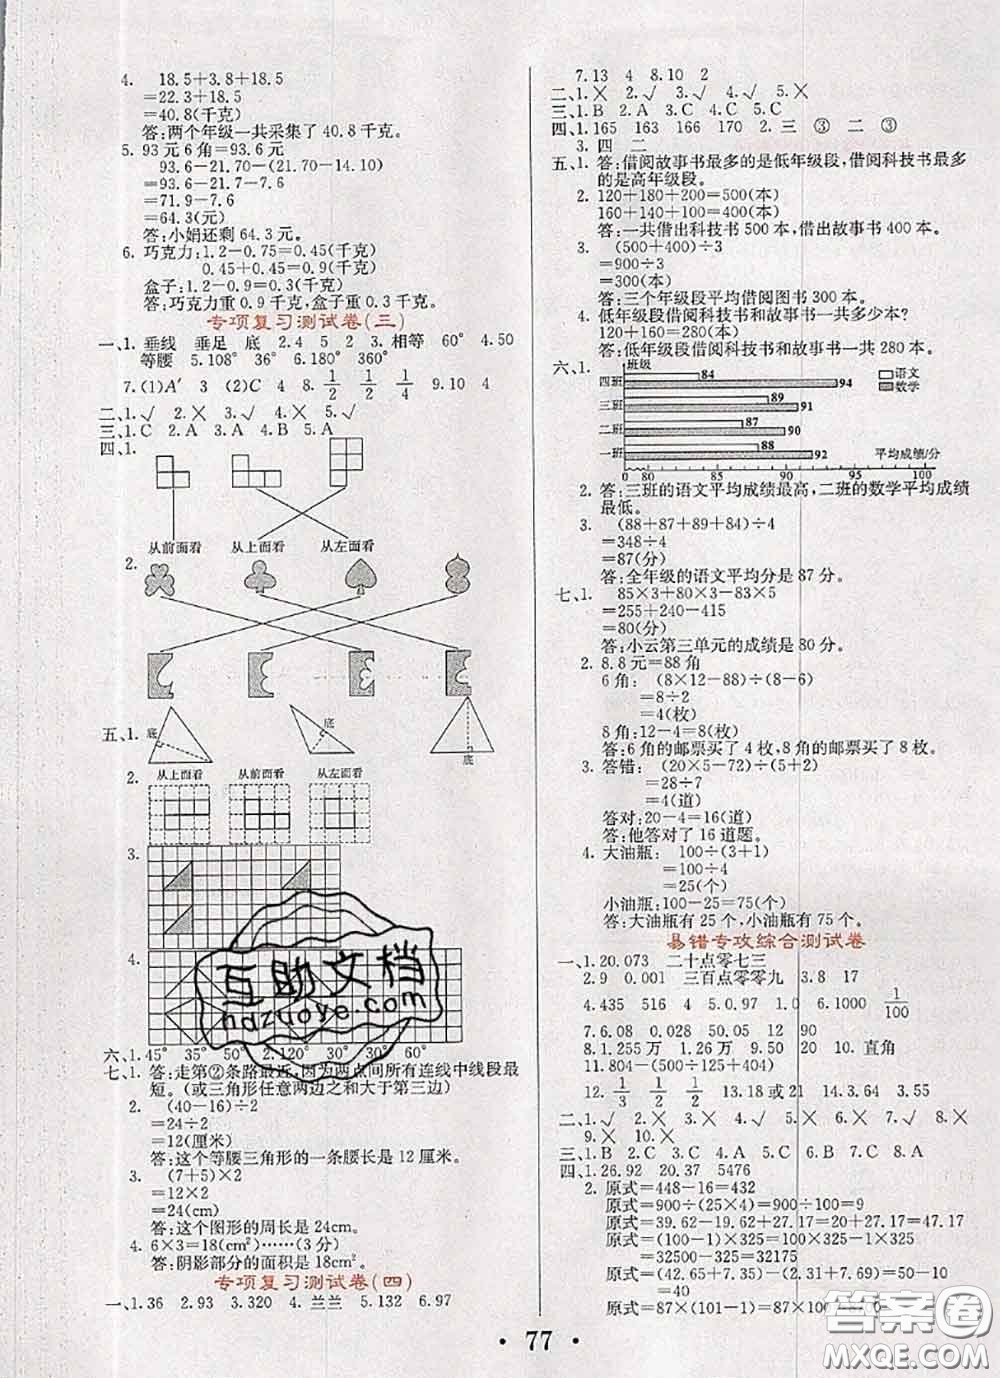 4. 18.5+3.8+18.5
=22.3+18.5
=40.8(千克)
答:两个年级一共采集了 40.8 千克。
5. 93 元 6 角=93.6 元
93.6-21.70-(21.70-14.10)
=93.6-21.7-7.6
=71.9-7.6
=64.3(元)
答:小娟还剩 64.3 元。
6. 巧克力:1.2-0.75=0.45(千克)
0.45+0.45=0.9(千克)
盒子:1.2-0.9=0.3(千克)
答:巧克力重 0.9 千克,盒子重 0.3 千克。
专项复习测试卷(三)
一、1. 垂线 垂足 底 2.4 5 2 3.相等 60° 4.50
等腰 5.108° 36° 6.180° 360°
7.(1)A′ 3 (2)C 4 8. 1/2 1/2 1/4 9.10 4
二、1.√ 2.× 3.√ 4.× 5.√
三、1.C 2.A 3.A 4.B 5.A
四、1.
从前面看 从上面看 从左面看
2.
五、1. 底 底 底
从上面看 从前面看 从左面看
2.
3.
4.
六、1.45° 35° 50° 2.120° 30° 30° 60°
七、1. 答:走第②条路最近,因为两点间所有连线中线段最
短。(或三角形任意两边之和大于第三边)
2. (40-16)÷2
=24÷2
=12(厘米)
答:这个等腰三角形的一条腰长是 12 厘米。
3. (7+5)×2
=12×2
=24(cm)
答:这个图形的周长是 24cm。
4. 6×3=18(cm²)……(3分)
答:阴影部分的面积是 18cm²。
专项复习测试卷(四)
一、1.36 2.93 3.320 4. 兰兰 5.132 6.97
7.13 4 8.10 2
二、1.× 2.√ 3.√ 4.√ 5.×
三、1.B 2.A 3.C 4.C 5.C
四、1.165 163 166 170 2. 三 ③ 二 ③
3. 四 二
五、1. 答:借阅故事书最多的是低年级段,借阅科技书最多
的是高年级段。
2. 120+180+200=500(本)
160+140+100=400(本)
答:一共借出科技书 500 本,借出故事书 400 本。
3. (500+400)÷3
=900÷3
=300(本)
答:三个年级段平均借阅图书 300 本。
4. 低年级段借阅科技书和故事书一共多少本?
120+160=280(本)
答:低年级段借阅科技书和故事书一共 280 本。
六、1. 班级
四班 84 94 语文
数学
三班 89 91
二班 87 90
一班 88 92 平均成绩/分
0 80 85 90 95 100
2. 答:三班的语文平均成绩最高,二班的数学平均成绩
最低。
3. (88+87+89+84)÷4
=348÷4
=87(分)
答:全年级的语文平均分是 87 分。
七、1. 85×3+80×3-83×5
=255+240-415
=80(分)
答:小云第三单元的成绩是 80 分。
2. 8.8 元=88 角
6 角: (8×12-88)÷(8-6)
=8÷2
=4(枚)
8 角:12-4=8(枚)
答:6 角的邮票买了 4 枚,8 角的邮票买了 8 枚。
3. 答错: (20×5-72)÷(5+2)
=28÷7
=4(道)
答对:20-4=16(道)
答:他答对了 16 道题。
4. 大油瓶: 100÷(3+1)
=25(个)
小油瓶:100-25=75(个)
答:大油瓶有 25 个,小油瓶有 75 个。
易错专攻综合测试卷
一、1.20.073 二十点零七三
2.9 0.001 三百点零零九 3.8 17
4.435 516 4 5.0.97 1.0 6.1000 1/100
7.6.08 0.028 50.05 12 90
8.1.255 万 1.26 万 9.50 20 10. 直角
11.804-(500÷125+404)
12. 1/3 1/2 1/2 13.18 或 21 14.3 3.55
二、1.√ 2.× 3.× 4.√ 5.× 6.× 7.√ 8.×
9.× 10.×
三、1.B 2.C 3.C 4.A 5.C 6.B 7.C 8.A
四、1.26.92 20.37 5476
2. 原式=448-16=432
原式=900÷(25×4)=900÷100=9
原式=39.62-19.62+27.17=20+27.17=47.17
原式=(100-1)×325=100×325-1×325
=32500-325=32175
原式=(42.65+7.35)-(2.69+7.31)=50-10
=40
原式=87×(101-1)=87×100=8700
77
互助文档
hdzuoye.com
答案圈
MXQE.COM